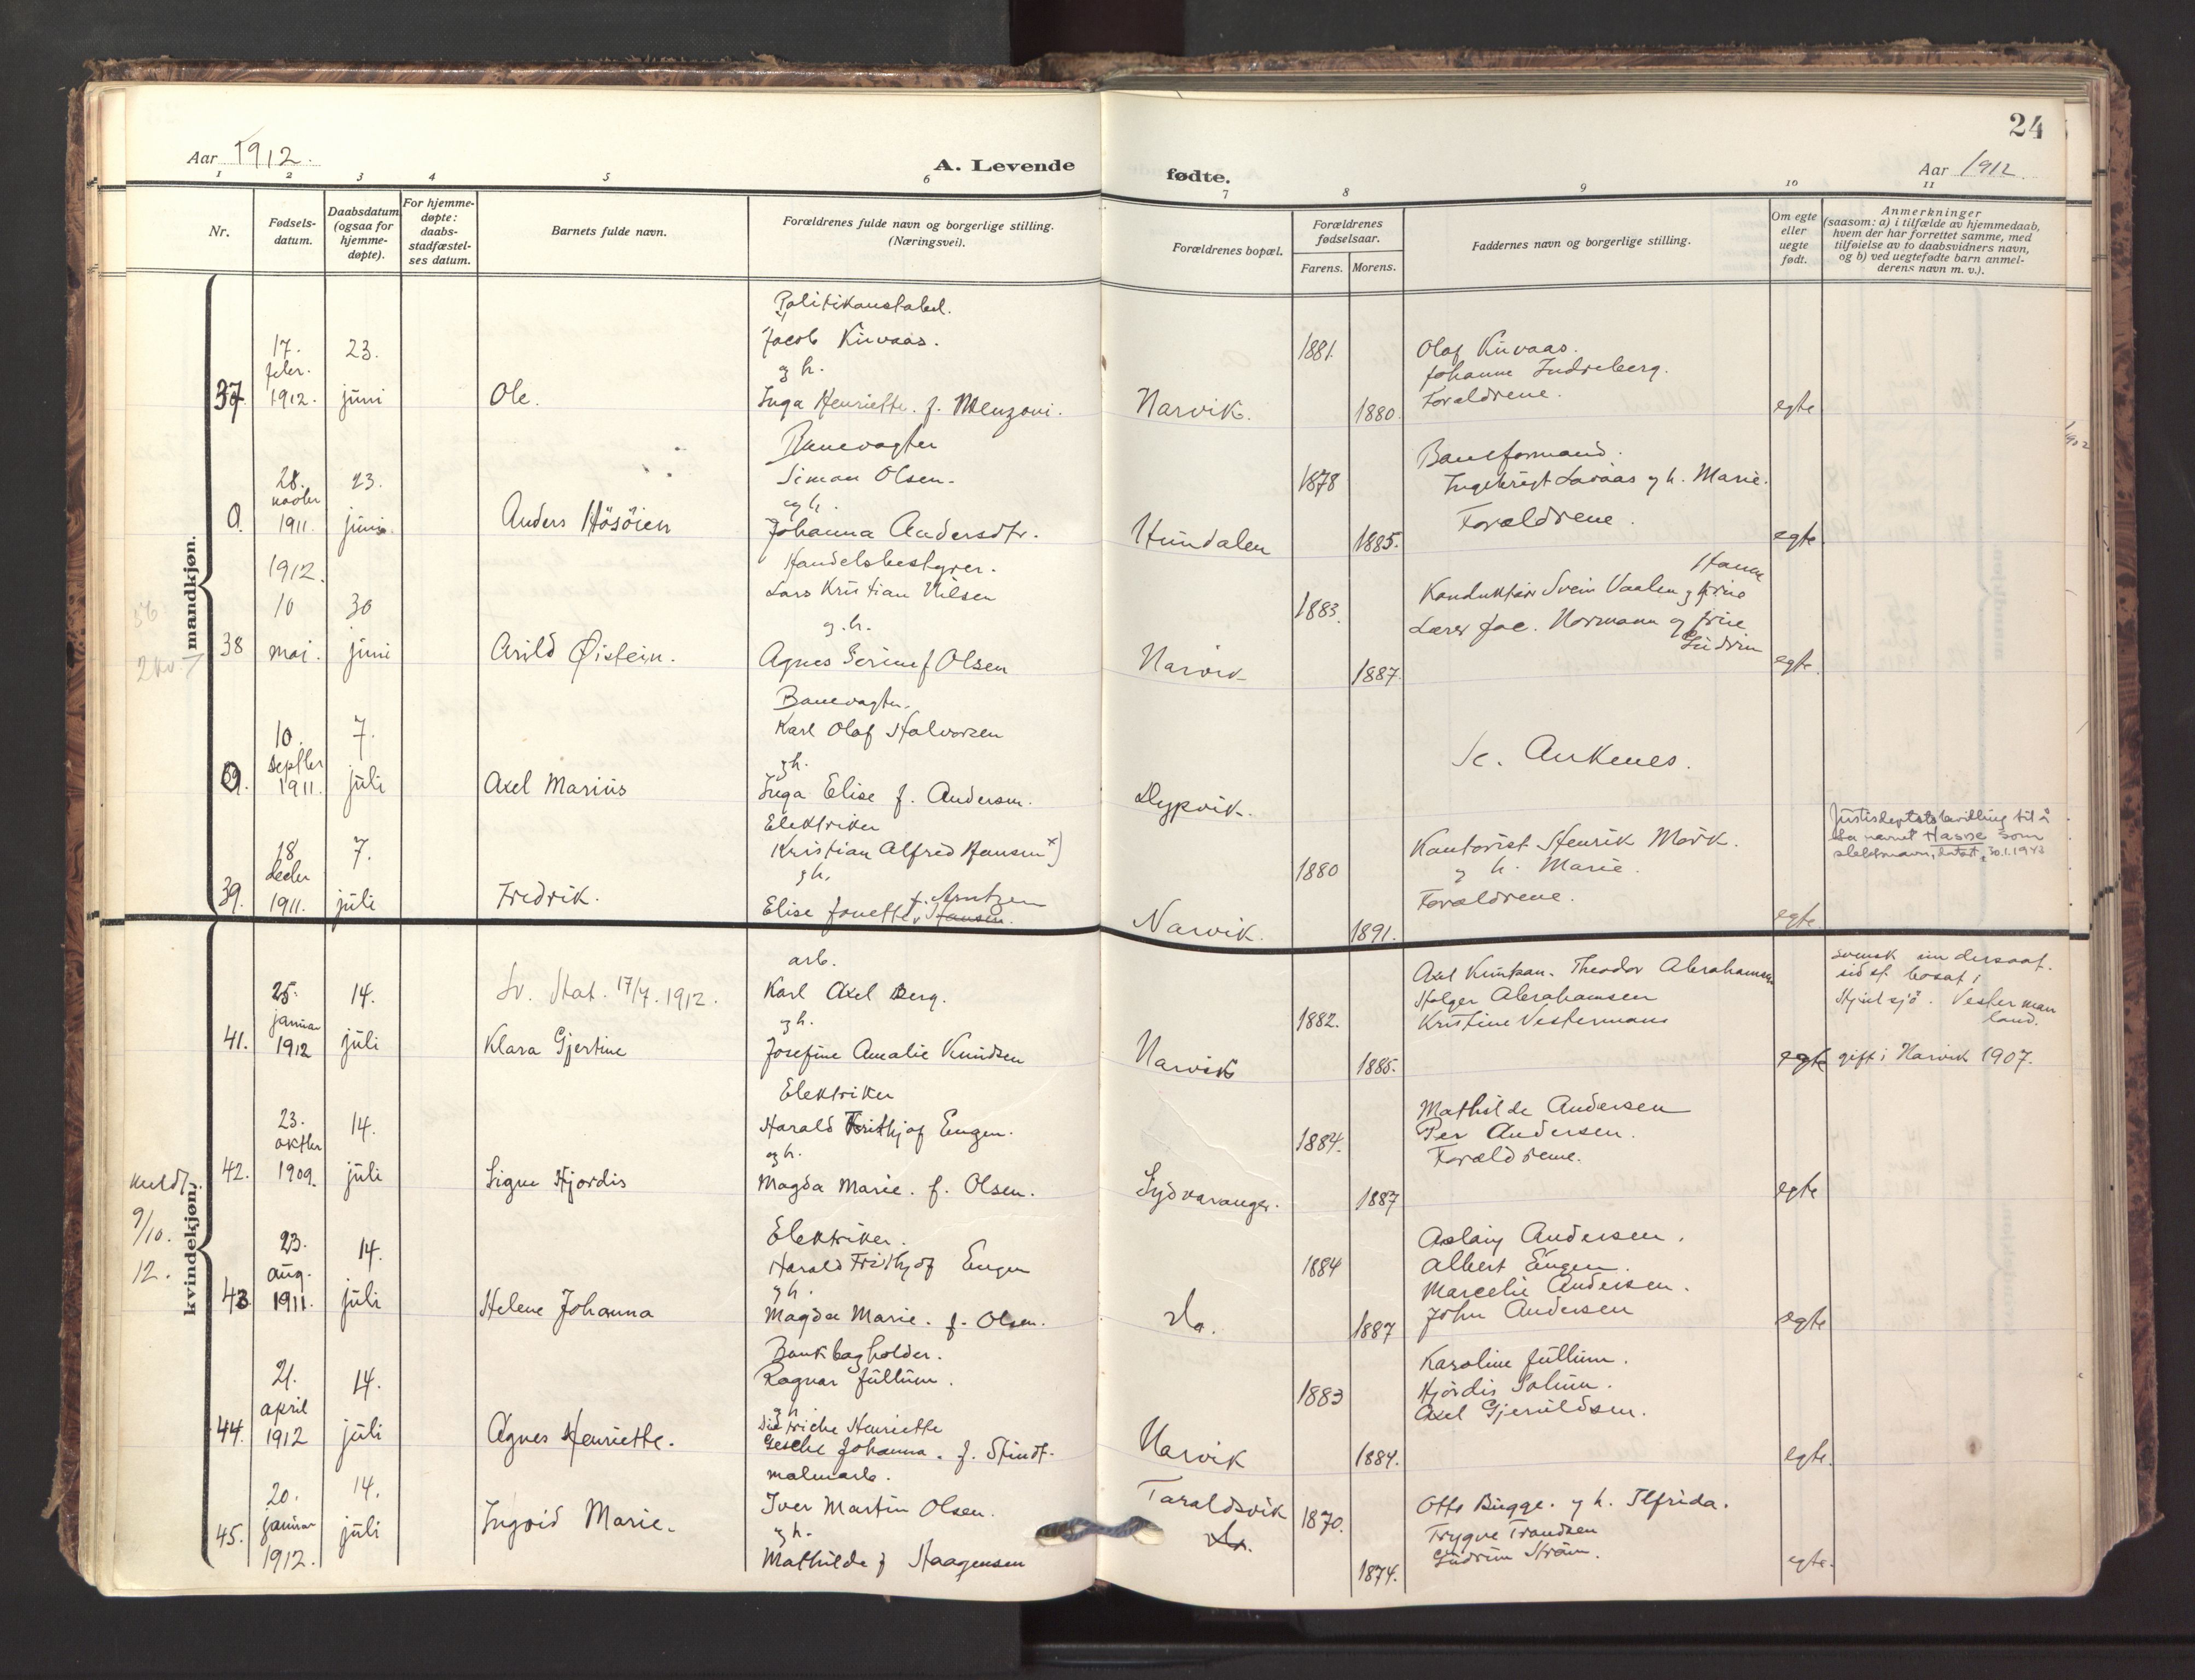 24
Aar 1912.
A. Levende
fødte.
Aar 1912
1 2 3 4 5 6 7 8 9 10 11
Nr.
Fødsels-
datum.
Daabsdatum
(ogsaa for
hjemme-
døpte).
For hjemme-
døpte:
daabs-
stadfæstel-
ses datum.
Barnets fulde navn.
Forældrenes fulde navn og borgerlige stilling.
(Næringsvei).
Forældrenes bopæl.
Forældrenes
fødselsaar.
Farens. Morens.
Faddernes navn og borgerlige stilling.
Om egte
eller
uegte
født.
Anmerkninger
(saasom: a) i tilfælde av hjemmedaab,
hvem der har forrettet samme, med
tilføielse av to daabsvidners navn,
og b) ved uegtefødte barn anmel-
derens navn m. v.).
mandkjøn.
37.
17.
febr.
1912.
23.
juni
Ole.
Politikonstabel.
Jacob Kirvaas.
g h.
Inga Henriette. f.
Narvik.
1881.
1880.
Olaf Kirvaas.
Johanne Indreberg.
Forældrene.
egte
0.
28.
novbr
1911.
23.
juni.
Anders Hösöien
Banevagter
Simon Olsen.
og h.
Johanna Andersdtr.
Hundalen
1878
1885.
Baneformand.
Ingebrigt Lavaas g h. Marie.
Forældrene.
egte
38
1912.
10
mai.
30
juni
Arild Øistein.
Handelsbestyrer.
Lars Kristian Nilsen
g. h.
Agnes f Olsen
Narvik
1883.
1887.
Hanna
Konduktør Svein Vaalen g frue
Lærer Jac. Normann g frue
Gudrun
egte.
0.
10.
septbr
1911.
7.
juli
Axel Marius
Banevagter.
Karl Olaf Halvorsen
g h.
Inga Elise f. Andersen.
Dypvik.
Se. Ankenes.
39.
18
decbr
1911.
7.
juli
Fredrik.
Elektriker
Kristian Alfred Hansen x)
g h.
Elise Jonette, f. Arntzen
Hansen.
Narvik.
1880
1891.
Kontorist Henrik Mörk.
g h. Marie.
Forældrene.
egte
Justisdeptets bevilling til å
ta navnet Hasse som
slektsnavn, datert 30.1.1943
kvindekjøn.
41.
25.
januar
1912
14.
juli
Sv. Stat. 17/7. 1912.
Klara Gjertine
arb.
Karl Axel Berg.
g h.
Josefine Amalie Knudsen
Narvik
1882.
1885.
Axel Knutsen. Theodor Abrahamsen
Holger Abrahamsen
Kristine Vestermans
egte
svensk undersaat.
sidst bosat i
Vesterman
land.
gift i Narvik 1907.
42.
23.
oktbr
1909.
14.
juli
Signe Hjördis
Elektriker
Harald Frithjof Eugen.
og h.
Magda Marie. f. Olsen.
Sydvaranger.
1884.
1887
Mathilde Andersen
Per Andersen.
Forældrene.
egte
meldt.
9/10.
12.
43
23.
aug.
1911.
14.
juli
Helene Johanna
Elektriker.
Harald Frithjof Eugen
g h.
Magda Marie. f. Olsen.
do.
1884
1887
Aslaug Andersen.
Albert Eugen.
Marcelie Andersen.
John Andersen
egte
44.
21.
april
1912
14.
juli
Agnes Henriette.
Bankbogholder.
Ragnar Jullum.
g h.
Didriche Henriette
Gesche Johanna. f. Stindt.
Narvik
1883
1884.
Karoline Jullum.
Hjördis Solum.
Axel Gjeruldsen.
egte.
45.
20.
januar
1912.
14.
juli
Ingvid Marie.
malmarb.
Iver Martin Olsen.
g h.
Mathilde f Haagensen
Taraldsvik
do.
1870.
1874.
Otto Bugge. g h. Alfrida.
Trygve Trondsen
Gudrun Ström.
egte.